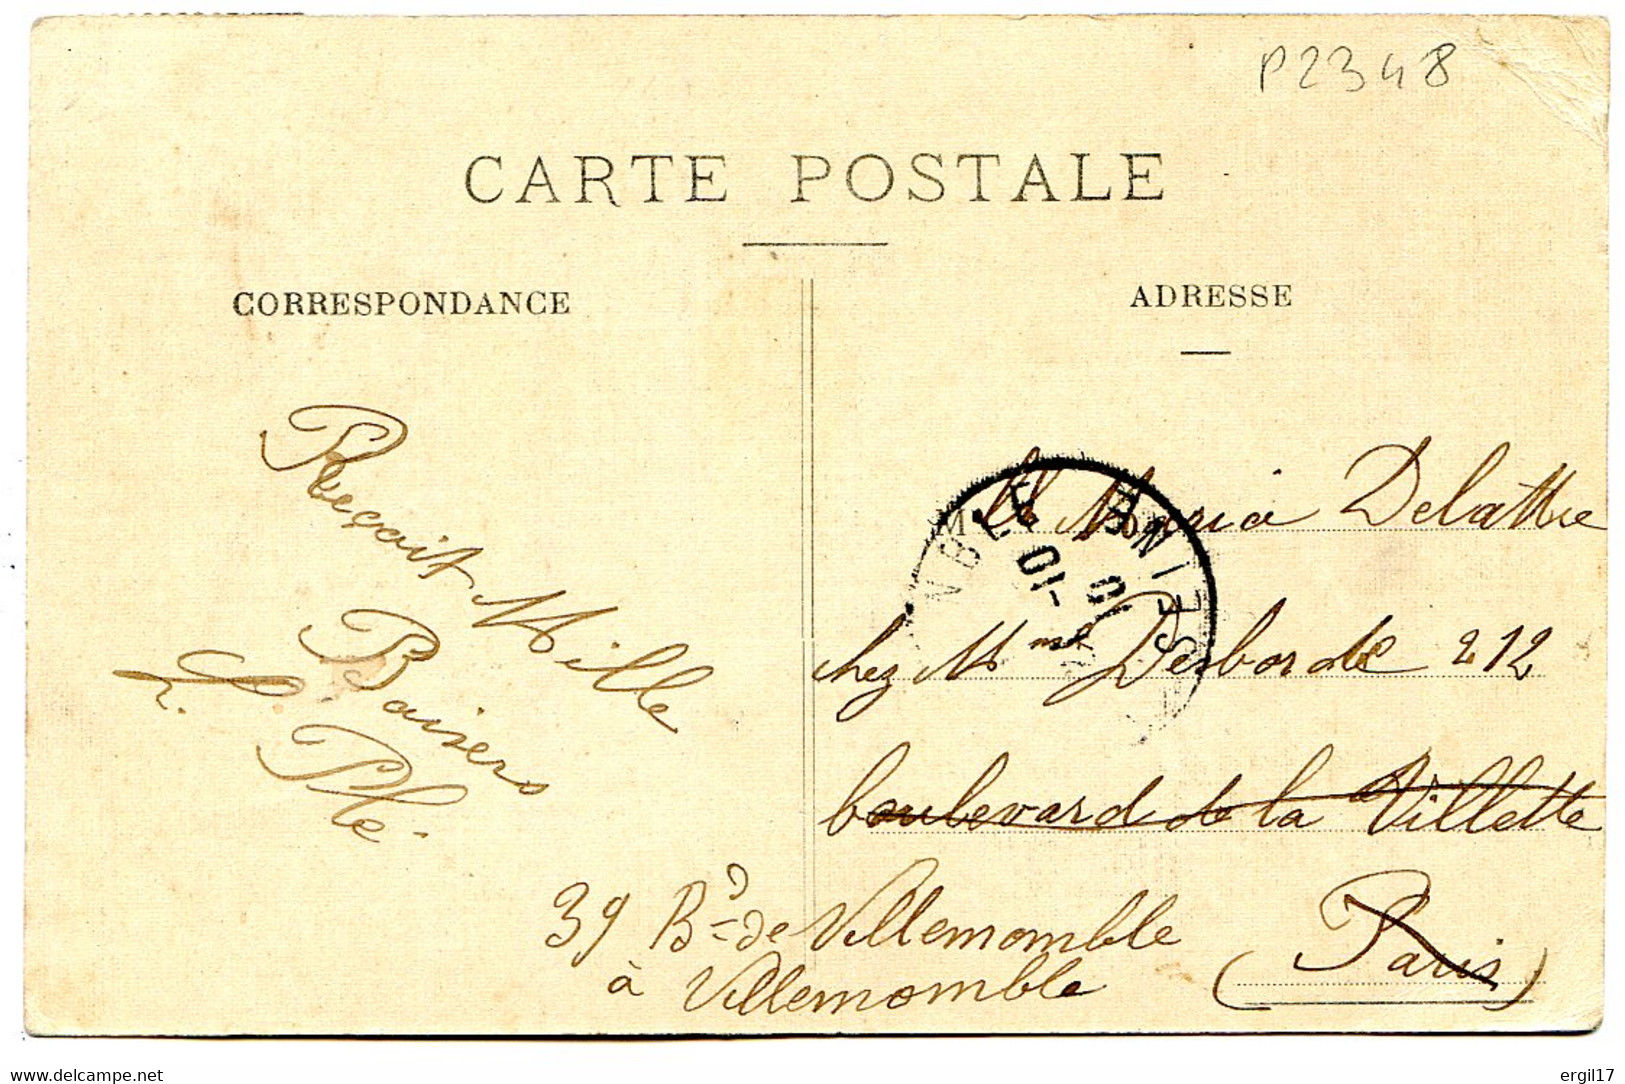 P2348
CARTE POSTALE
CORRESPONDANCE
ADRESSE
Reçoit Mille
Baisers
Mlle Maria Delattre
chez Mme Desborde 212
boulevard de la Villette
Paris
39 Bd de Villemomble
à Villemomble
www.delcampe.net
ergil17